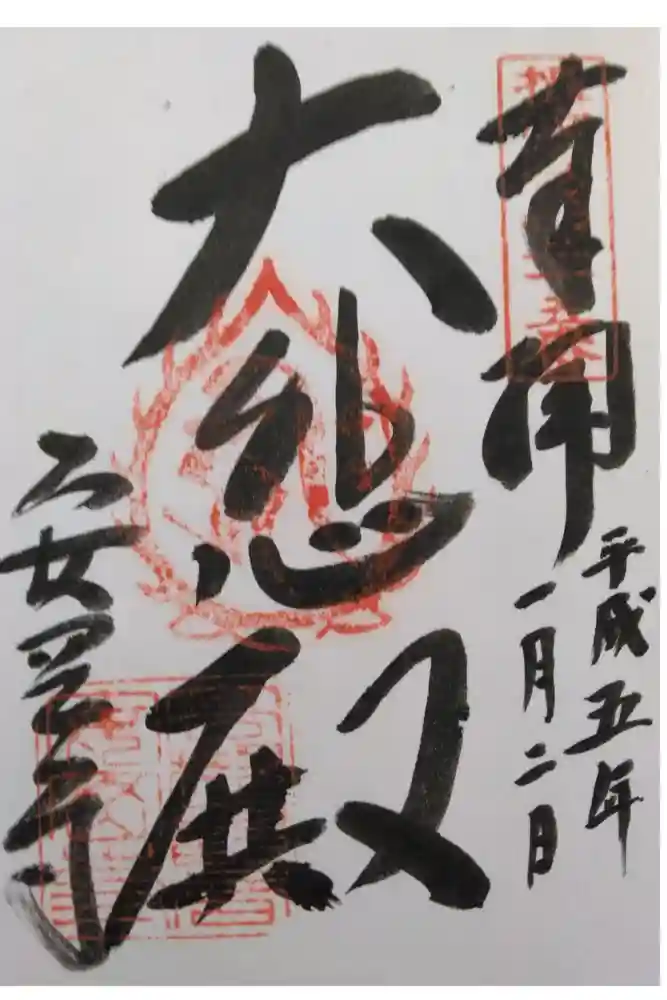 奉拝
平成五年
一月二日
大悲殿
安岡寺